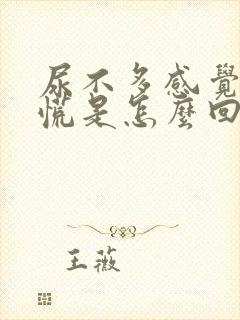 尿不多感覺
慌是怎麼回
王薇